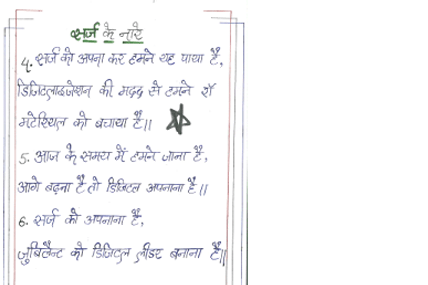 सर्ज के नारे
4. सर्ज को अपना कर हमने यह पाया है,
डिजिटलाइजेशन की मदद से हमने रॉ
मटेरियल को बचाया है।।
5. आज के समय में हमने जाना है,
आगे बढ़ना है तो डिजिटल अपनाना है।।
6. सर्ज को अपनाना है,
जुबिलैंट को डिजिटल लीडर बनाना है।।